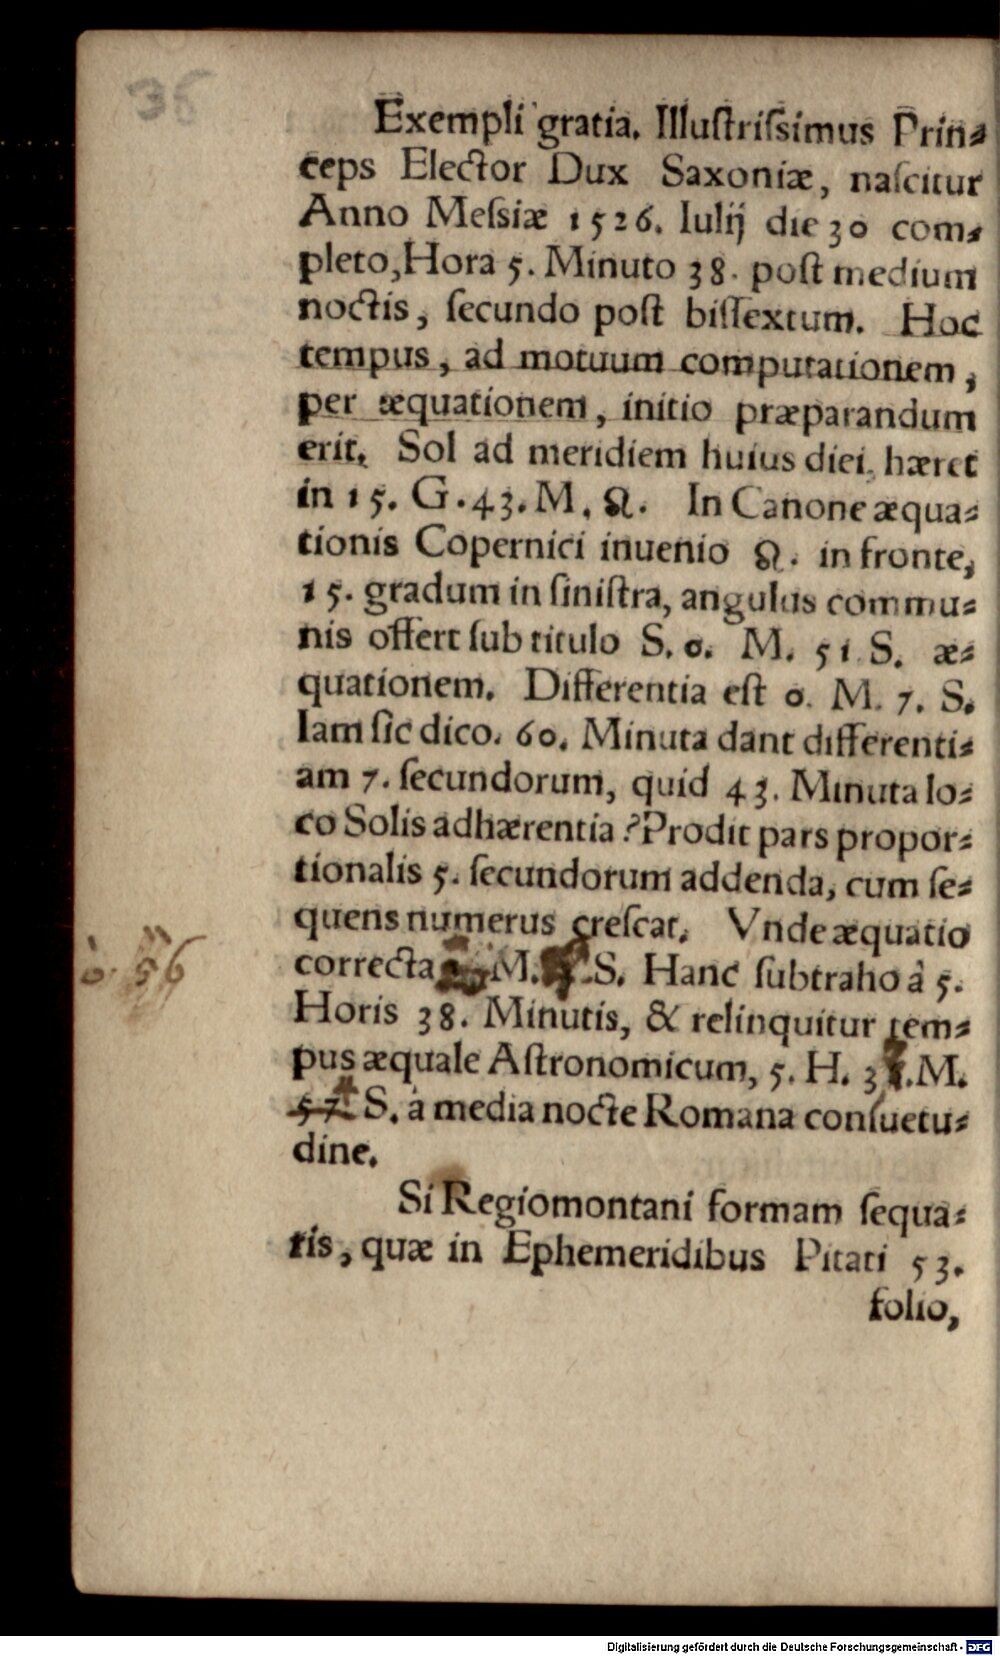 36
Exempli gratia. Illuſtriſsimus Prin⸗
ceps Elector Dux Saxoniæ, naſcitur
Anno Meſsiæ 1526. Iulij die 30 com⸗
pleto, Hora 5. Minuto 38. poſt medium
noctis, ſecundo poſt biſſextum. Hoc
tempus, ad motuum computationem,
per æquationem, initio præparandum
erit. Sol ad meridiem huius diei, hæret
in 15. G. 43. M. ♌. In Canone æqua⸗
tionis Copernici inuenio ♌. in fronte,
15. gradum in ſiniſtra, angulus commu⸗
nis offert ſub titulo S. 0. M. 51 S. æ⸗
quationem. Differentia eſt 0. M. 7. S.
Iam ſic dico. 60. Minuta dant differenti⸗
am 7. ſecundorum, quid 43. Minuta lo⸗
co Solis adhærentia? Prodit pars propor⸗
tionalis 5. ſecundorum addenda, cum ſe⸗
quens numerus creſcat. Vnde æquatio
0. 56
correcta M. S. Hanc ſubtraho à 5.
Horis 38. Minutis, & relinquitur tem⸗
pus æquale Aſtronomicum, 5. H. M.
4
57. S. à media nocte Romana conſuetu⸗
dine.
Si Regiomontani formam ſequa⸗
ris, quæ in Ephemeridibus Pitati 53.
folio,
Digitalisierung gefördert durch die Deutsche Forschungsgemeinschaft - DFG